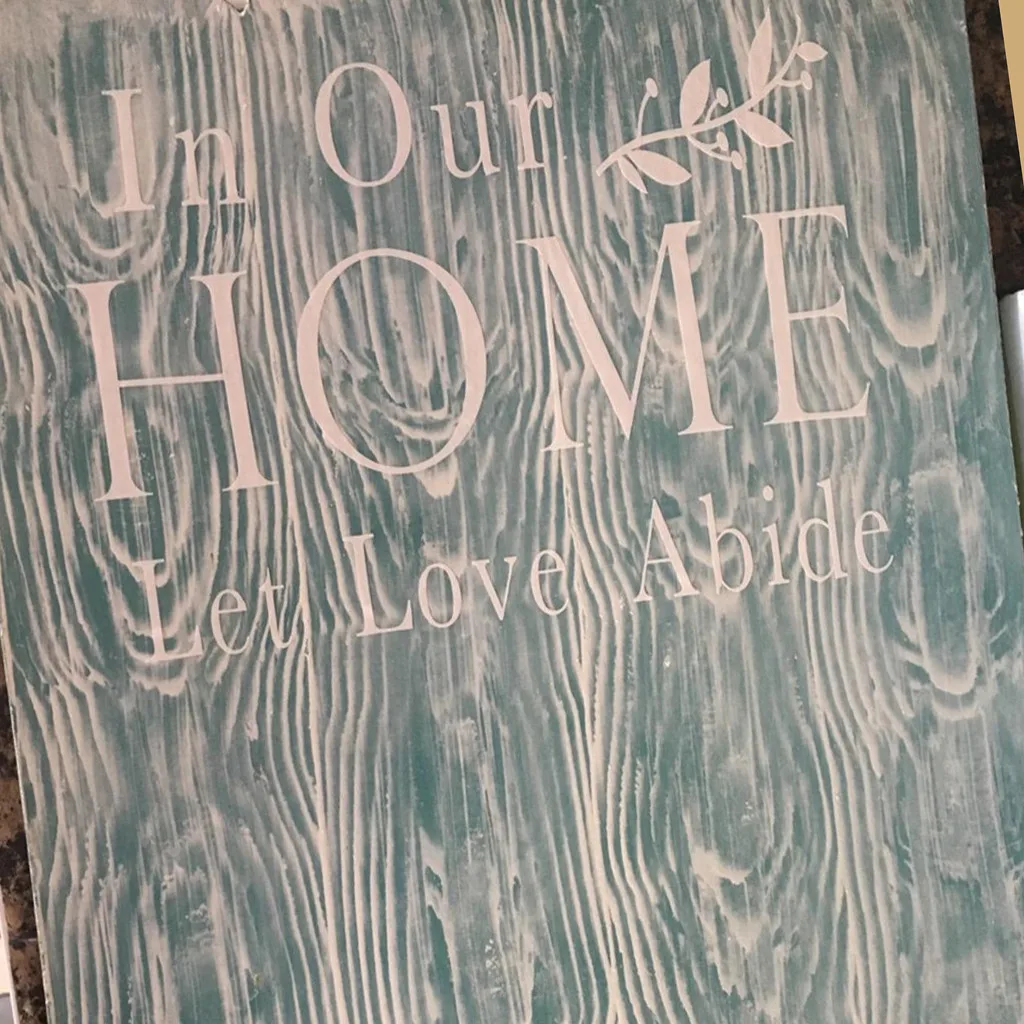 In Our
HOME
Let Love Abide